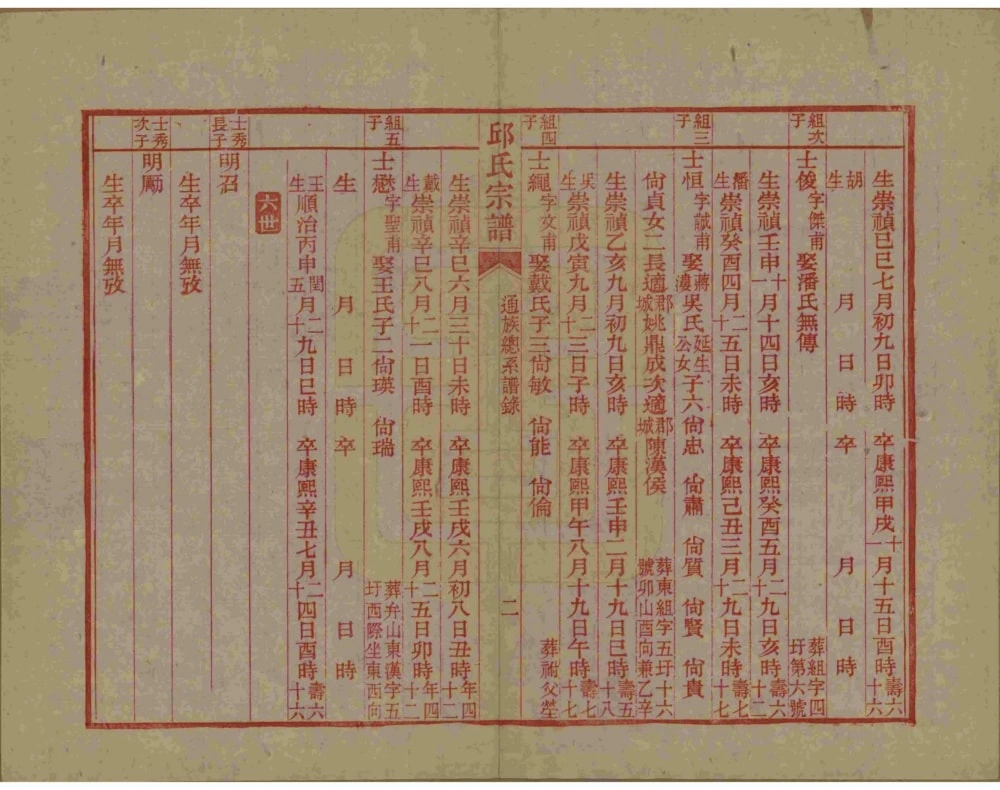 生崇禎己巳七月初九日卯時　卒康熙甲戌十一月十五日酉時壽六十六
胡生　月　日　時　卒　月　日　時
組次子　士俊字傑甫　娶潘氏無傳　葬組字四圩第六號
生崇禎壬申十一月十四日亥時　卒康熙癸酉五月二十九日亥時壽六十二
潘生崇禎癸酉四月二十五日未時　卒康熙己丑三月二十九日未時壽七十七
組三子　士恒字誠甫　娶蔣漊吳氏延生公女子六尙忠　尙肅　尙質　尙賢　尙貴
尙貞女二長適郡城姚鼎成次適郡城陳漢侯　葬東組字五圩十六號卯山酉向兼乙辛
生崇禎乙亥九月初九日亥時　卒康熙壬申二月十九日巳時壽五十八
吳生崇禎戊寅九月二十三日子時　卒康熙甲午八月十九日午時壽七十七
組四子　士繩字文甫　娶戴氏子三尙敏　尙能　尙倫　葬祔父塋
邱氏宗譜　通族總系譜錄　二
生崇禎辛巳六月三十日未時　卒康熙壬戌六月初八日丑時年四十二
戴生崇禎辛巳八月二十一日酉時　卒康熙壬戌八月二十五日卯時年四十二
組五子　士懋字聖甫　娶王氏子二尙瑛　尙瑞　葬弁山東漢字五圩西際坐東西向
生　月　日　時　卒　月　日　時
王生順治丙申閏五月二十九日巳時　卒康熙辛丑七月二十四日酉時壽六十六
六世
士秀長子　明召
生卒年月無攷
士秀次子　明勵
生卒年月無攷